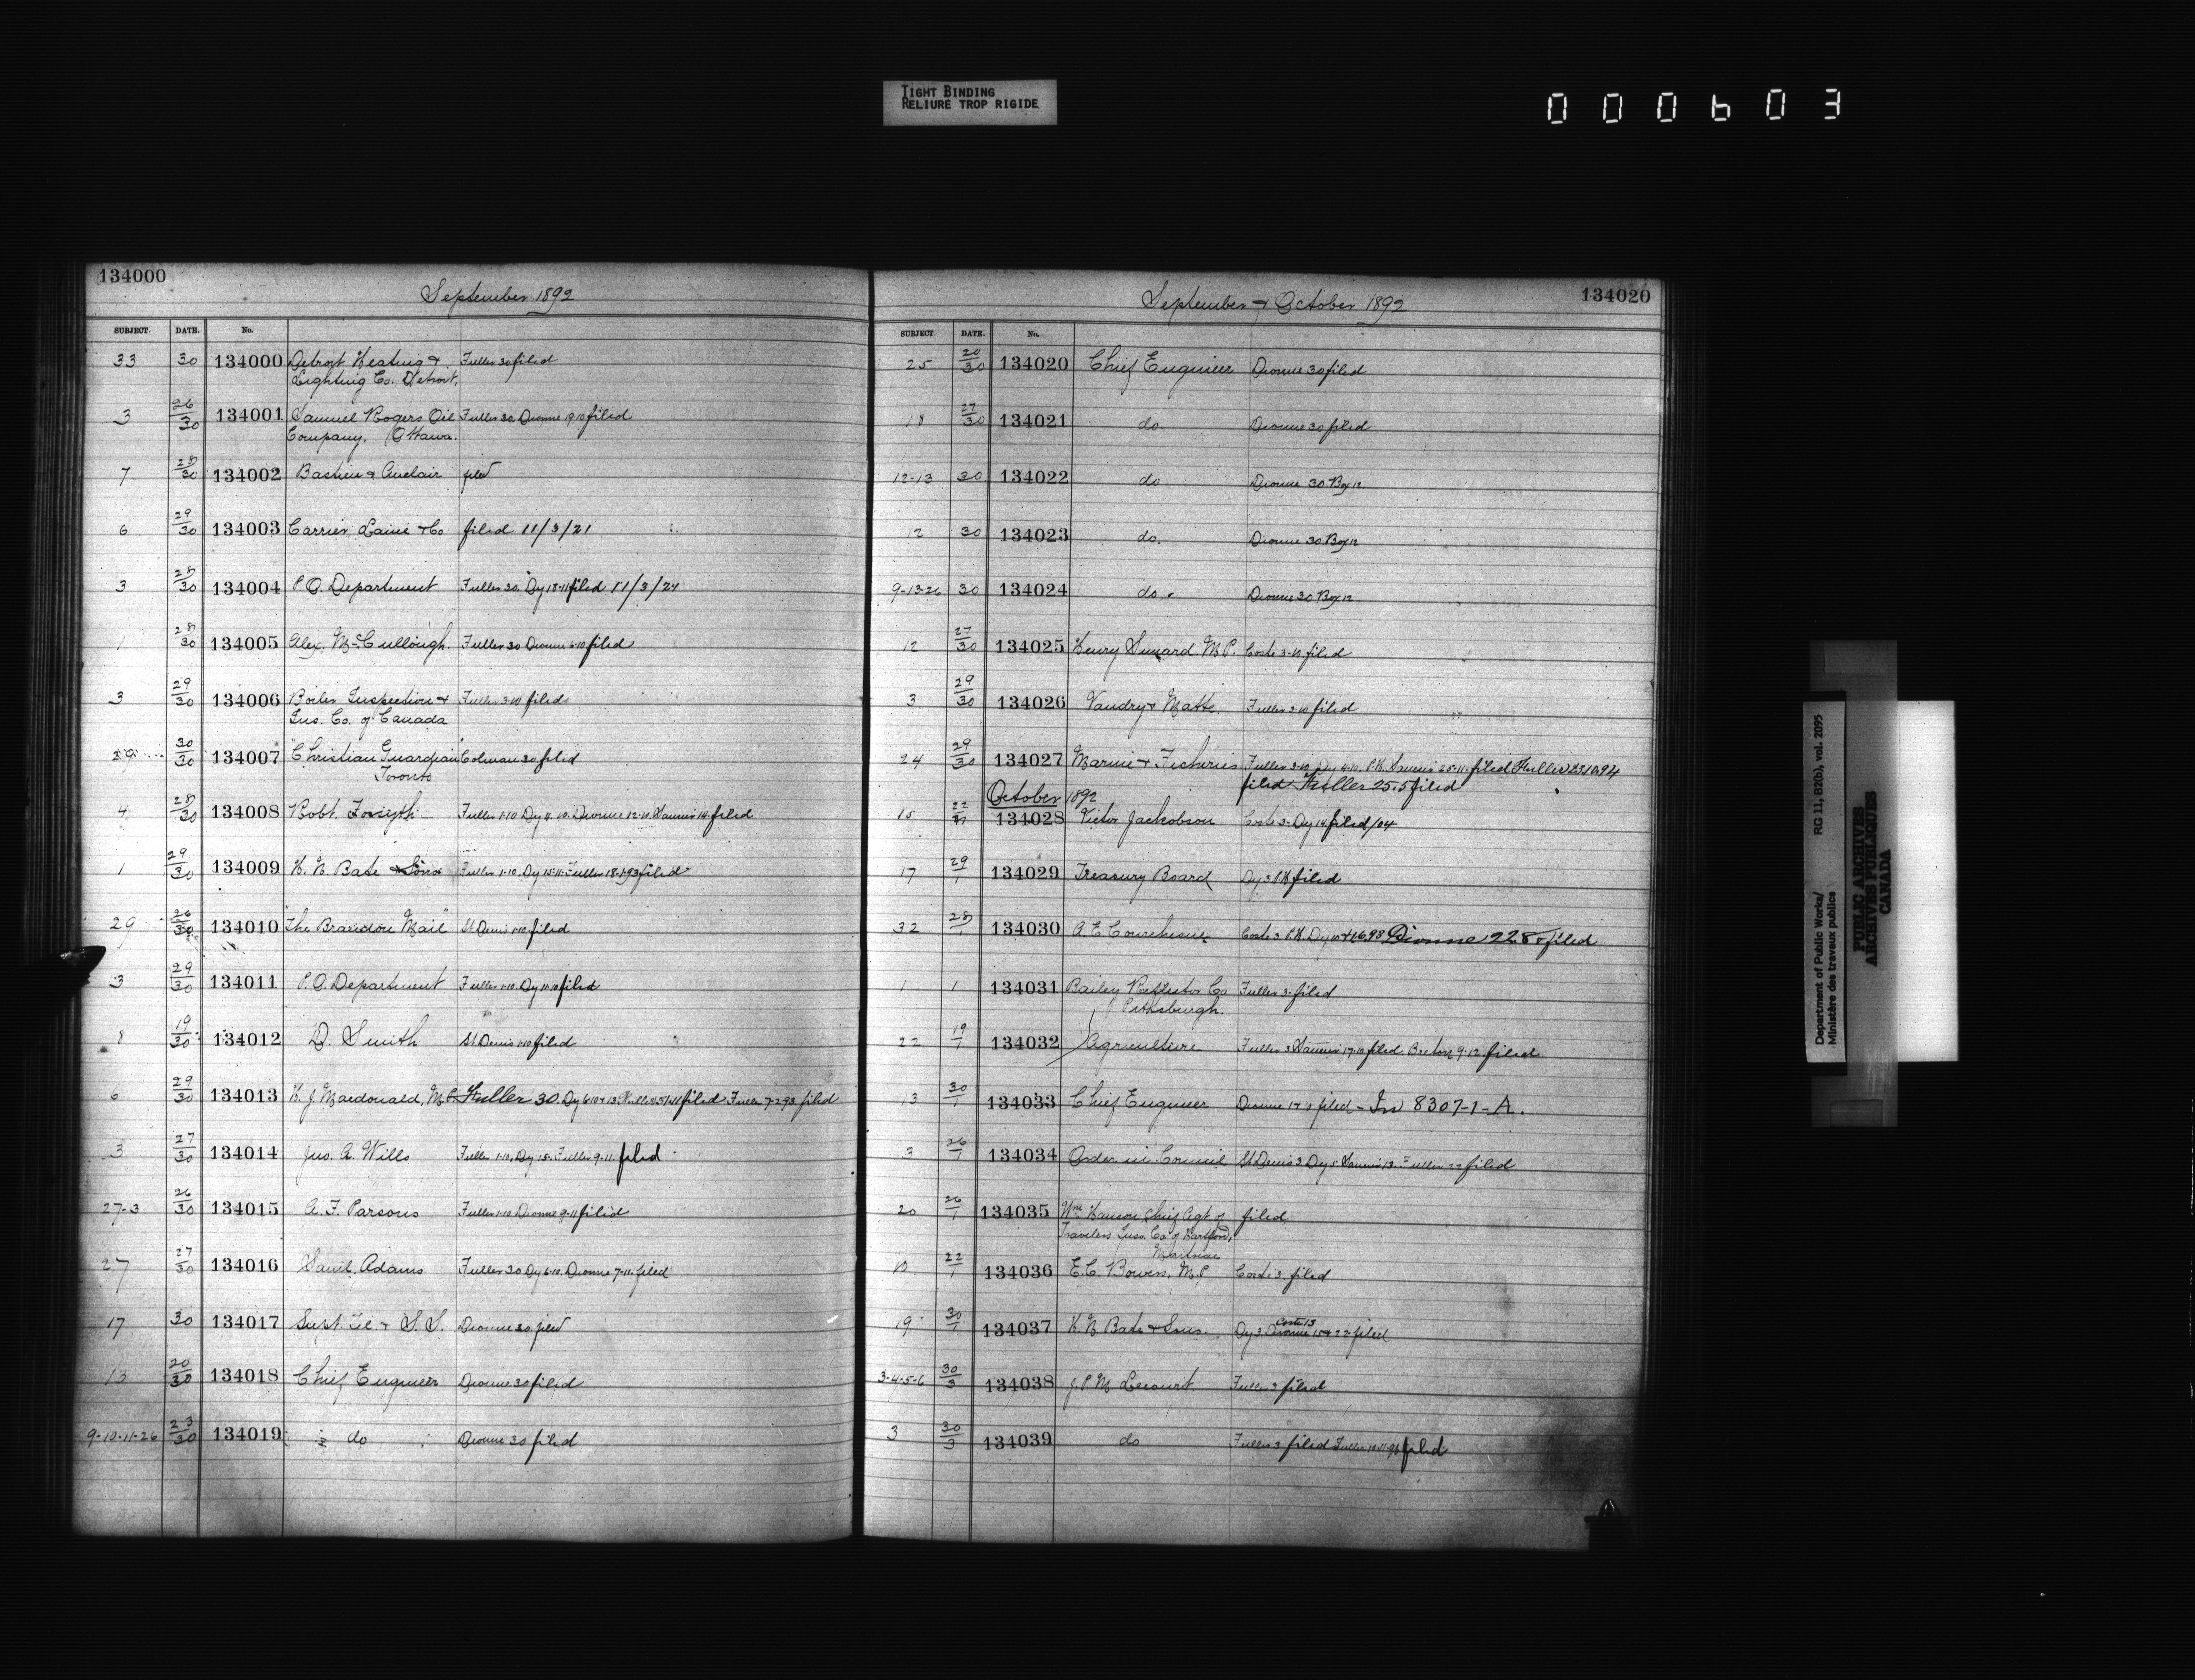 TIGHT BINDING
RELIURE TROP RIGIDE
000603
134000
September 1892
SUBJECT. DATE. No.
33 30 134000 Detroit Heating & Fuller 30 filed
Lighting Co. Detroit.
3 26/30 134001 Samuel Rogers Oil Fuller 30 Dionne 19.10 filed
Company. Ottawa.
7 28/30 134002 Bastien & Auclair filed
6 29/30 134003 Carrier, Laine & Co filed 11/3/21
3 28/30 134004 P.O. Department Fuller 30. Dy 18-11 filed 11/3/24
1 28/30 134005 Alex. McCullough. Fuller 30 Dionne 6.10 filed
3 29/30 134006 Boiler Inspection & Fuller 3.10 filed
Ins. Co. of Canada
29 30/30 134007 "Christian Guardian" Colman 30 filed
Toronto
4 28/30 134008 Robt. Forsyth Fuller 1-10 Dy 11.10. Dionne 12.10. filed
1 29/30 134009 H. N. Bate & Sons Fuller 1.10. Dy 15.11. Fuller 18.1.93 filed
29 26/30 134010 "The Brandon Mail" St. Denis 1.10 filed
3 29/30 134011 P.O. Department Fuller 1.10. Dy 11.10 filed
8 19/30 134012 D. Smith St. Denis 1.10 filed
6 29/30 134013 H. J. Macdonald, M.P. Fuller 30 Dy filed Fuller 7-2.93 filed
3 27/30 134014 Jno. A. Wills Fuller 1.10. Dy 15. Fuller 9.11. filed
27-3 26/30 134015 A. F. Parsons Fuller 1.10 Dionne 9-11 filed
27 27/30 134016 Saml. Adams Fuller 30 Dy 6.10. Dionne 7.11. filed
17 30 134017 Supt. Tel. & S. S. Dionne 30. filed
13 20/30 134018 Chief Engineer Dionne 30 filed
9-10-11-26 23/30 134019 do Dionne 30 filed
September & October 1892
134020
SUBJECT. DATE. No.
25 20/30 134020 Chief Engineer Dionne 30 filed
18 27/30 134021 do Dionne 30 filed
12-13 30 134022 do Dionne 30. Box 12.
12 30 134023 do. Dionne 30. Box 12
9-13-26 30 134024 do. Dionne 30 Box 12
12 27/30 134025 Henry M.P. Coste 3-10 filed
3 29/30 134026 Vaudry & Matte. Fuller 3.10 filed
24 29/30 134027 Marine & Fisheries Fuller 3.10 Dy 4.10. P.H. 25.11. filed Fuller
filed Fuller 25.5 filed
October 1892
15 22/1 134028 Victor Jackobson Coste 3. Dy 14 filed /04
17 29/1 134029 Treasury Board Dy 3 P.H. filed
32 28 134030 A. E. Courchesne Coste 3 P.H. Dy Dionne 22 8 filed
1 1 134031 Bailey Reflector Co Fuller 3. filed
Pittsburgh.
22 19/1 134032 Agriculture Fuller 3 17.10 filed. Breton 9.12. filed
13 30/1 134033 Chief Engineer Dionne filed - In 8307-1-A.
3 26/1 134034 Order in Council St. Denis 3 Dy 5 Fuller 22 filed
20 26/1 134035 Wm. Hanson Chief Agt. of filed
Travelers Inss. Co. of Hartford,
Montreal
10 22/1 134036 E. C. Bowers, M.P. Coste 3. filed
19 30/1 134037 H. N. Bate & Sons. Dy 3. Coste 13 Dionne 15 & 22 filed
3-4-5-6 30/3 134038 J. P. M. Lecourt Fuller 3 filed
3 30/3 134039 do Fuller 3 filed Fuller filed
Department of Public Works/ RG 11, B2(b), vol. 2095
Ministère des travaux publics
PUBLIC ARCHIVES
ARCHIVES PUBLIQUES
CANADA